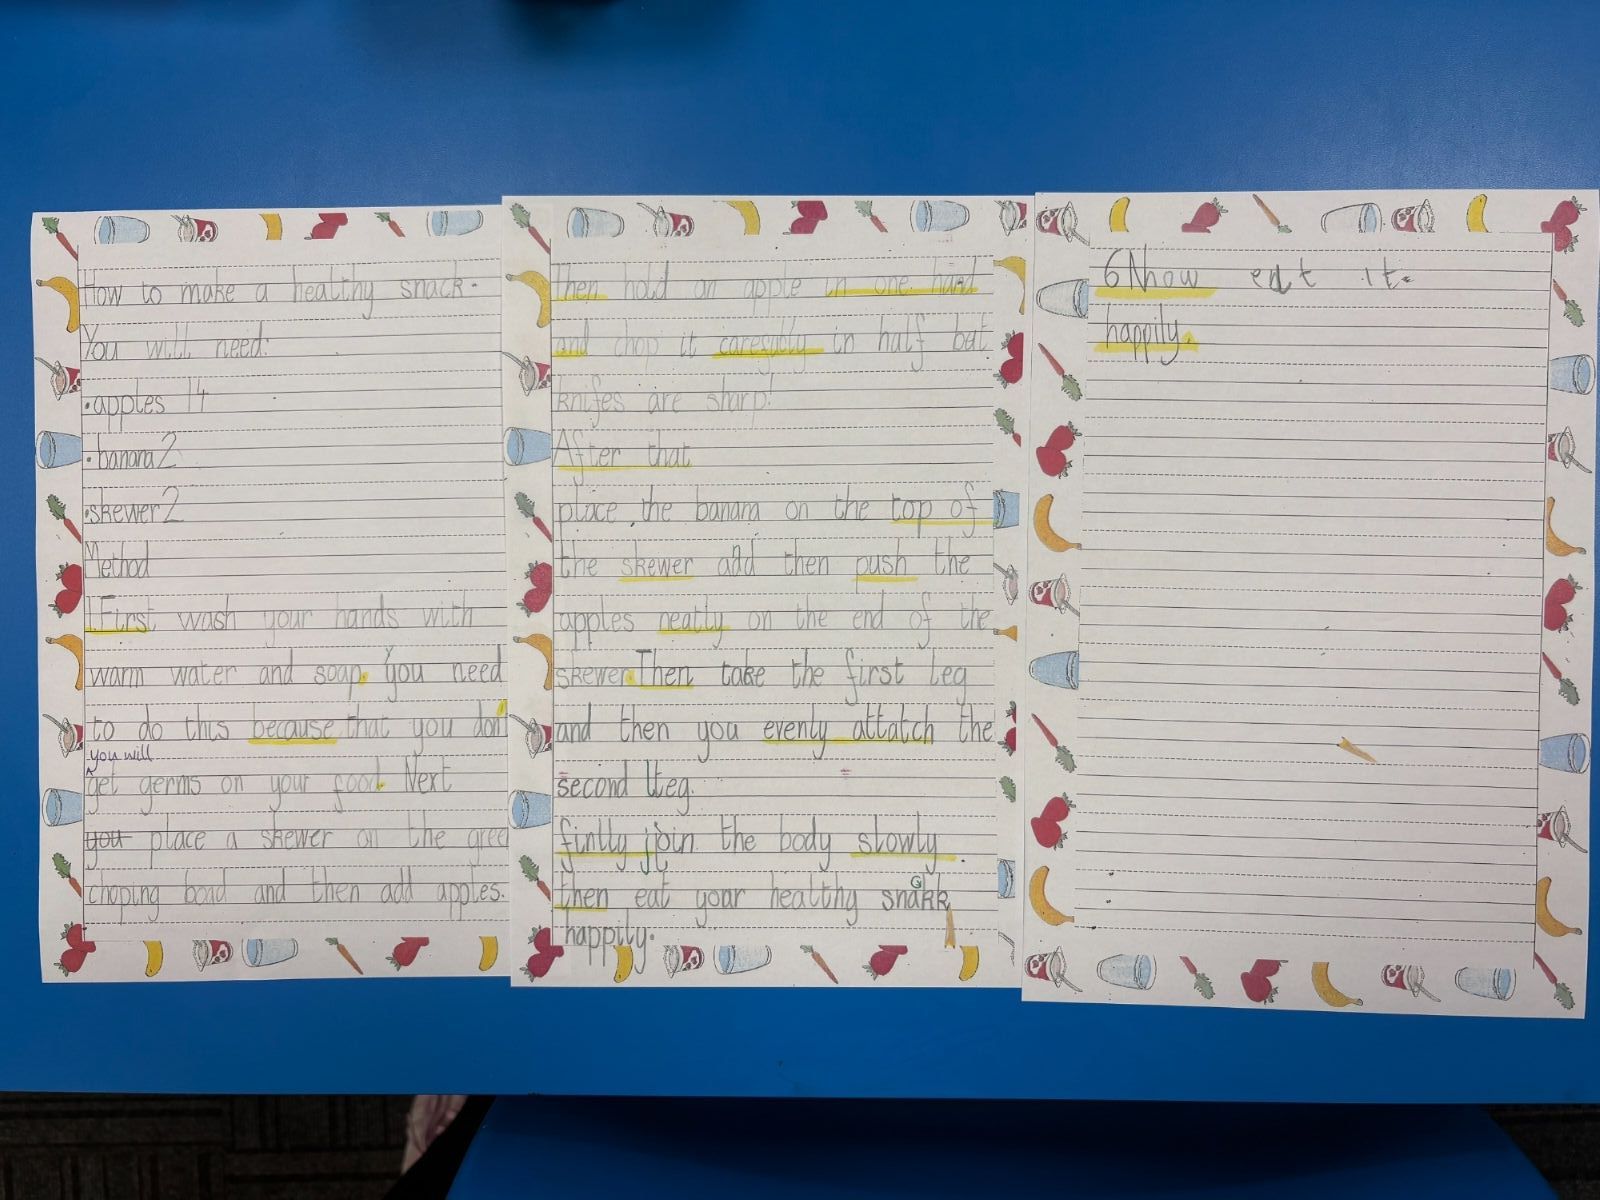 How to make a healthy snack.
You will need:
•apples 14
•banana 2
•skewer 2
Method
1.First wash your hands with
warm water and soap. You need
to do this because that you don
you will
get germs on your food. Next
you place a skewer on the gree
choping boad and then add apples.
Then hold an apple in one hand
and chop it in half bat
knifes are sharp!
After that
place the banana on the top of
the skewer add then push the
apples neatly on the end of the
skewer.Then take the first leg
and then you evenly attatch the
second leg.
fintly join the body slowly.
then eat your healthy
happily.
6 Nhow eat it.
happily.